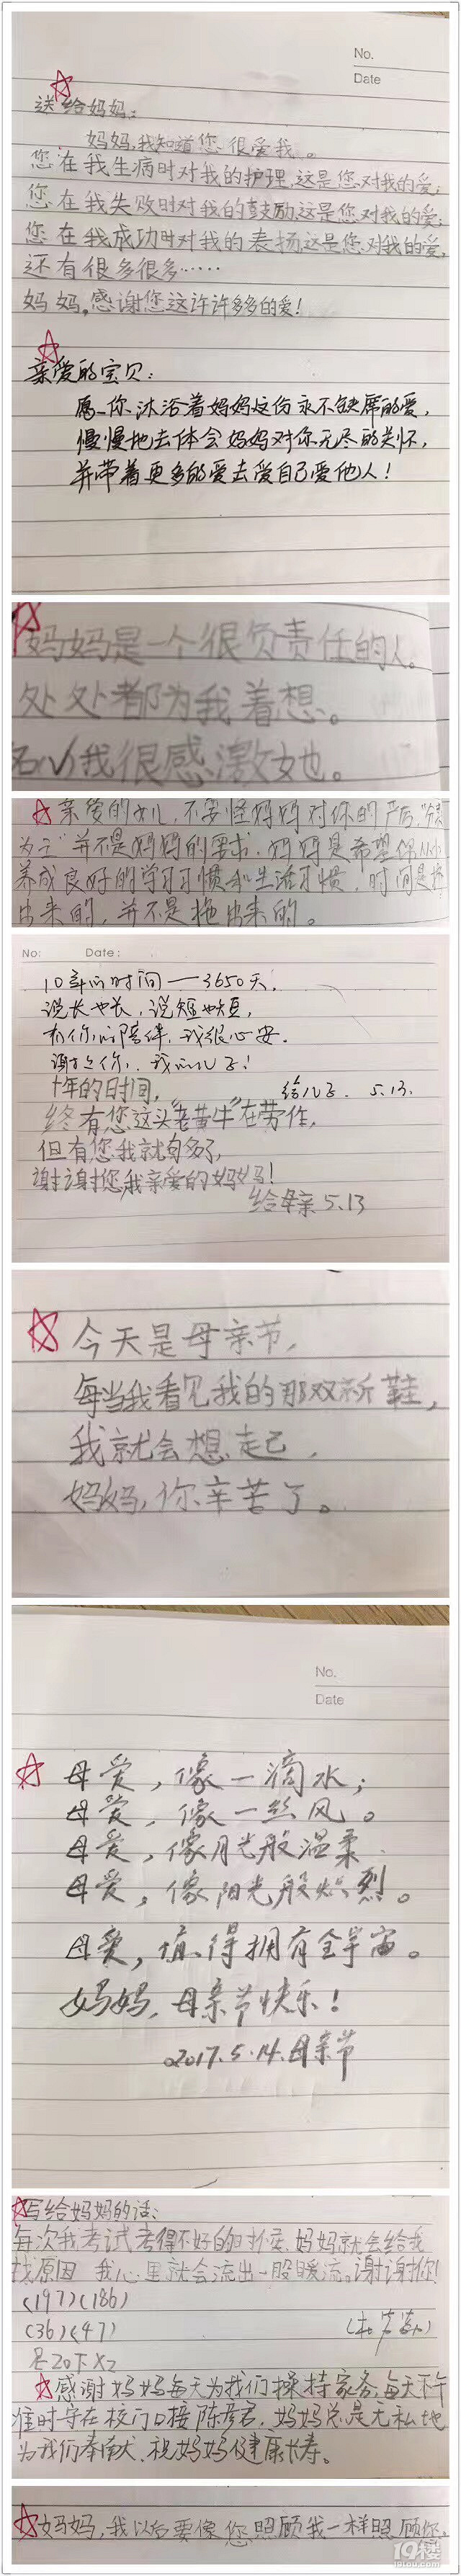 No.
Date
送给妈妈:
妈妈,我知道您很爱我。
您在我生病时对我的护理,这是您对我的爱;
您在我失败时对我的鼓励,这是您对我的爱;
您在我成功时对我的表扬,这是您对我的爱,
还有很多很多……
妈妈,感谢您这许许多多的爱!
亲爱的宝贝:
愿你沐浴着妈妈这份永不缺席的爱,
慢慢地去体会妈妈对你无尽的关怀,
并带着更多的爱去爱自己爱他人!
妈妈是一个很负责任的人。
处处都为我着想。
我很感激她。
亲爱的女儿,不要怪妈妈对你的严厉,
并不是妈妈的要求,妈妈是希望你从小
养成良好的学习习惯和生活习惯,时间是挤
出来的,并不是拖出来的。
No: Date:
10年的时间——3650天,
说长也长,说短也短,
有你的陪伴,我很心安。
谢谢你,我的儿子!
给儿子. 5.13.
十年的日时间,
终有您这头“老黄牛”在劳作,
但有您我就够了,
谢谢您,我亲爱的妈妈!
给母亲 5.13
今天是母亲节,
每当我看见我的那双新鞋,
我就会想起,
妈妈,你辛苦了。
No.
Date
母爱,像一滴水;
母爱,像一丝风。
母爱,像月光般温柔
母爱,像阳光般炽烈。
母爱,值得拥有全宇宙。
妈妈,母亲节快乐!
2017.5.14.母亲节
写给妈妈的话:
每次我考试考得不好的时候,妈妈就会给我
找原因 我心里就会流出一股暖流。谢谢你!
(197)(186)
(36)(47)
感谢妈妈每天为我们操持家务,每天下午
准时守在校门口接陈彦君,妈妈总是无私地
为我们奉献,祝妈妈健康长寿。
妈妈,我以后要像您照顾我一样照顾你。
19楼
19lou.com